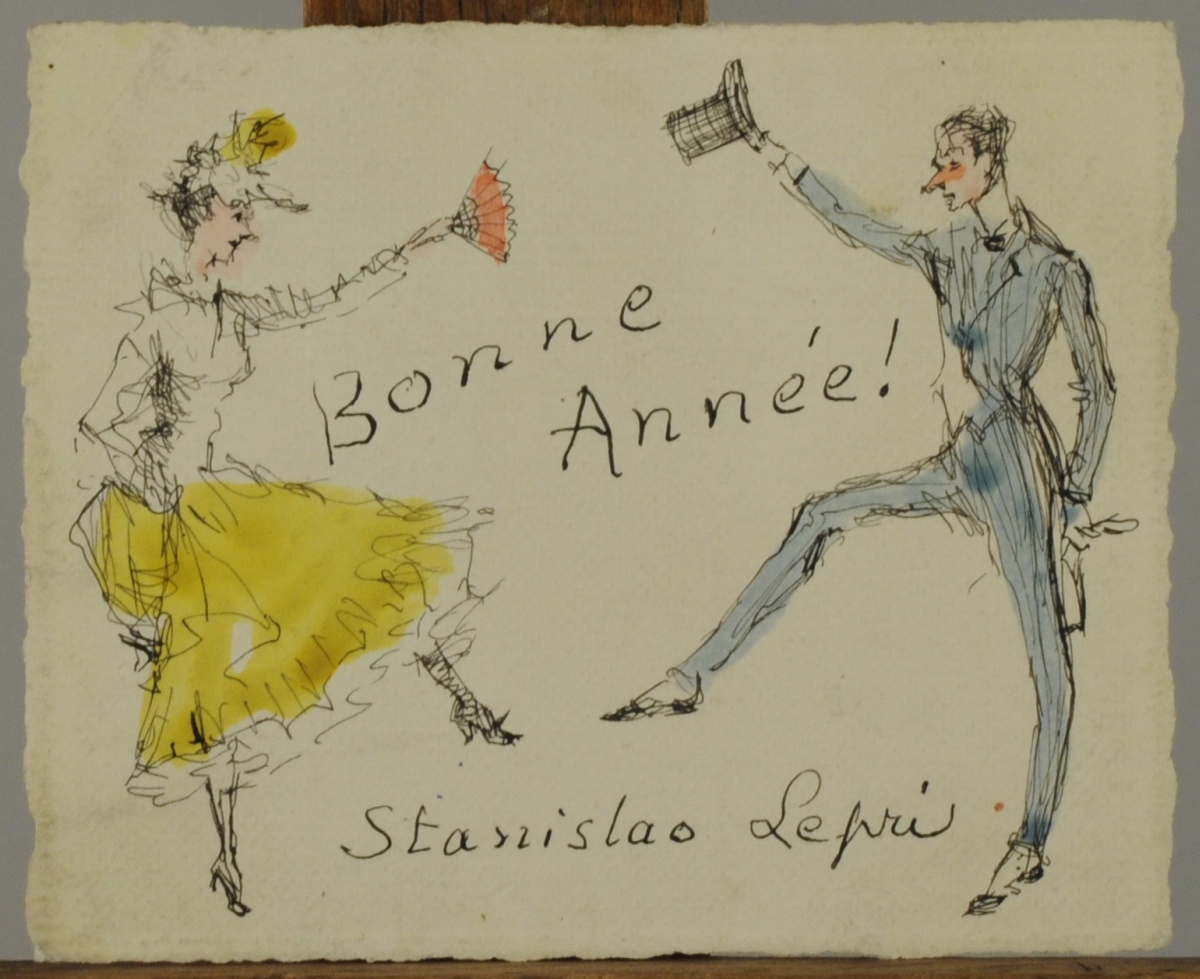 Bonne
Année!
Stanislao Lepri